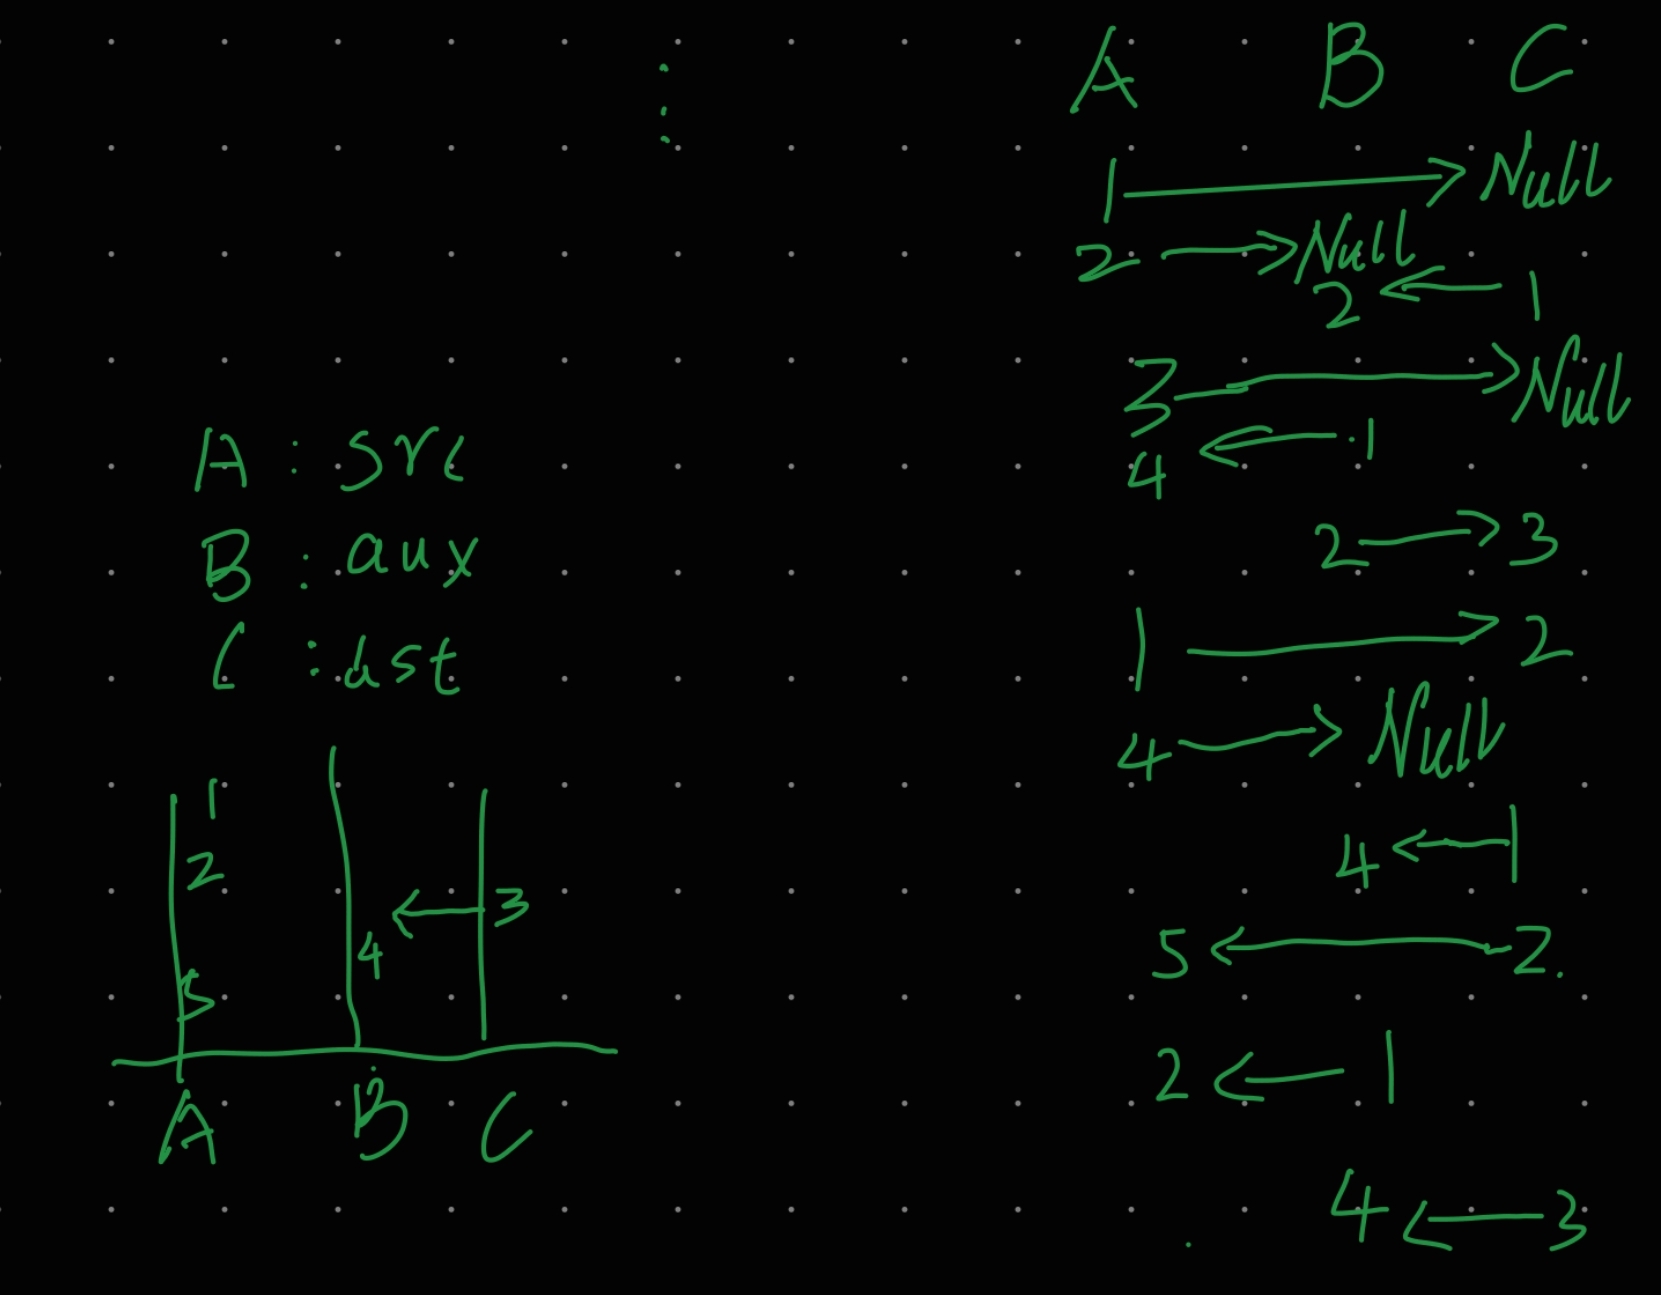 A B C
1 → Null
2 → Null
2 ← 1
3 → Null
4 ← 1
2 → 3
1 → 2
4 → Null
4 ← 1
5 ← 2.
2 ← 1
4 ← 3
A : src
B : aux
C : dst
1
2
4 ← 3
5
A B C